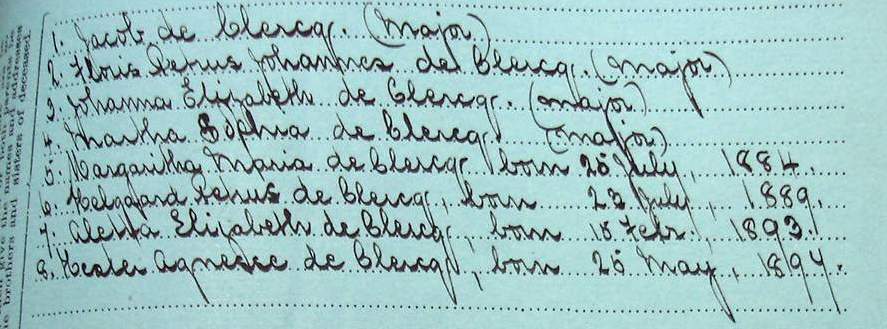 1. Jacob de Clercq. (Major)
2. Floris Petrus Johannes de Clercq. (Major)
3. Johanna Elizabeth de Clercq. (Major)
4. Martha Sophia de Clercq (Major)
5. Margaritha Maria de Clercq, born 25 July, 1884.
6. Petrus de Clercq, born July, 1889.
7. Aletta Elizabeth de Clercq, born 15 Febr. 1893.
8. Agnesce de Clercq, born 25 May, 1894.
give the names and addresses
brothers and sisters of deceased.